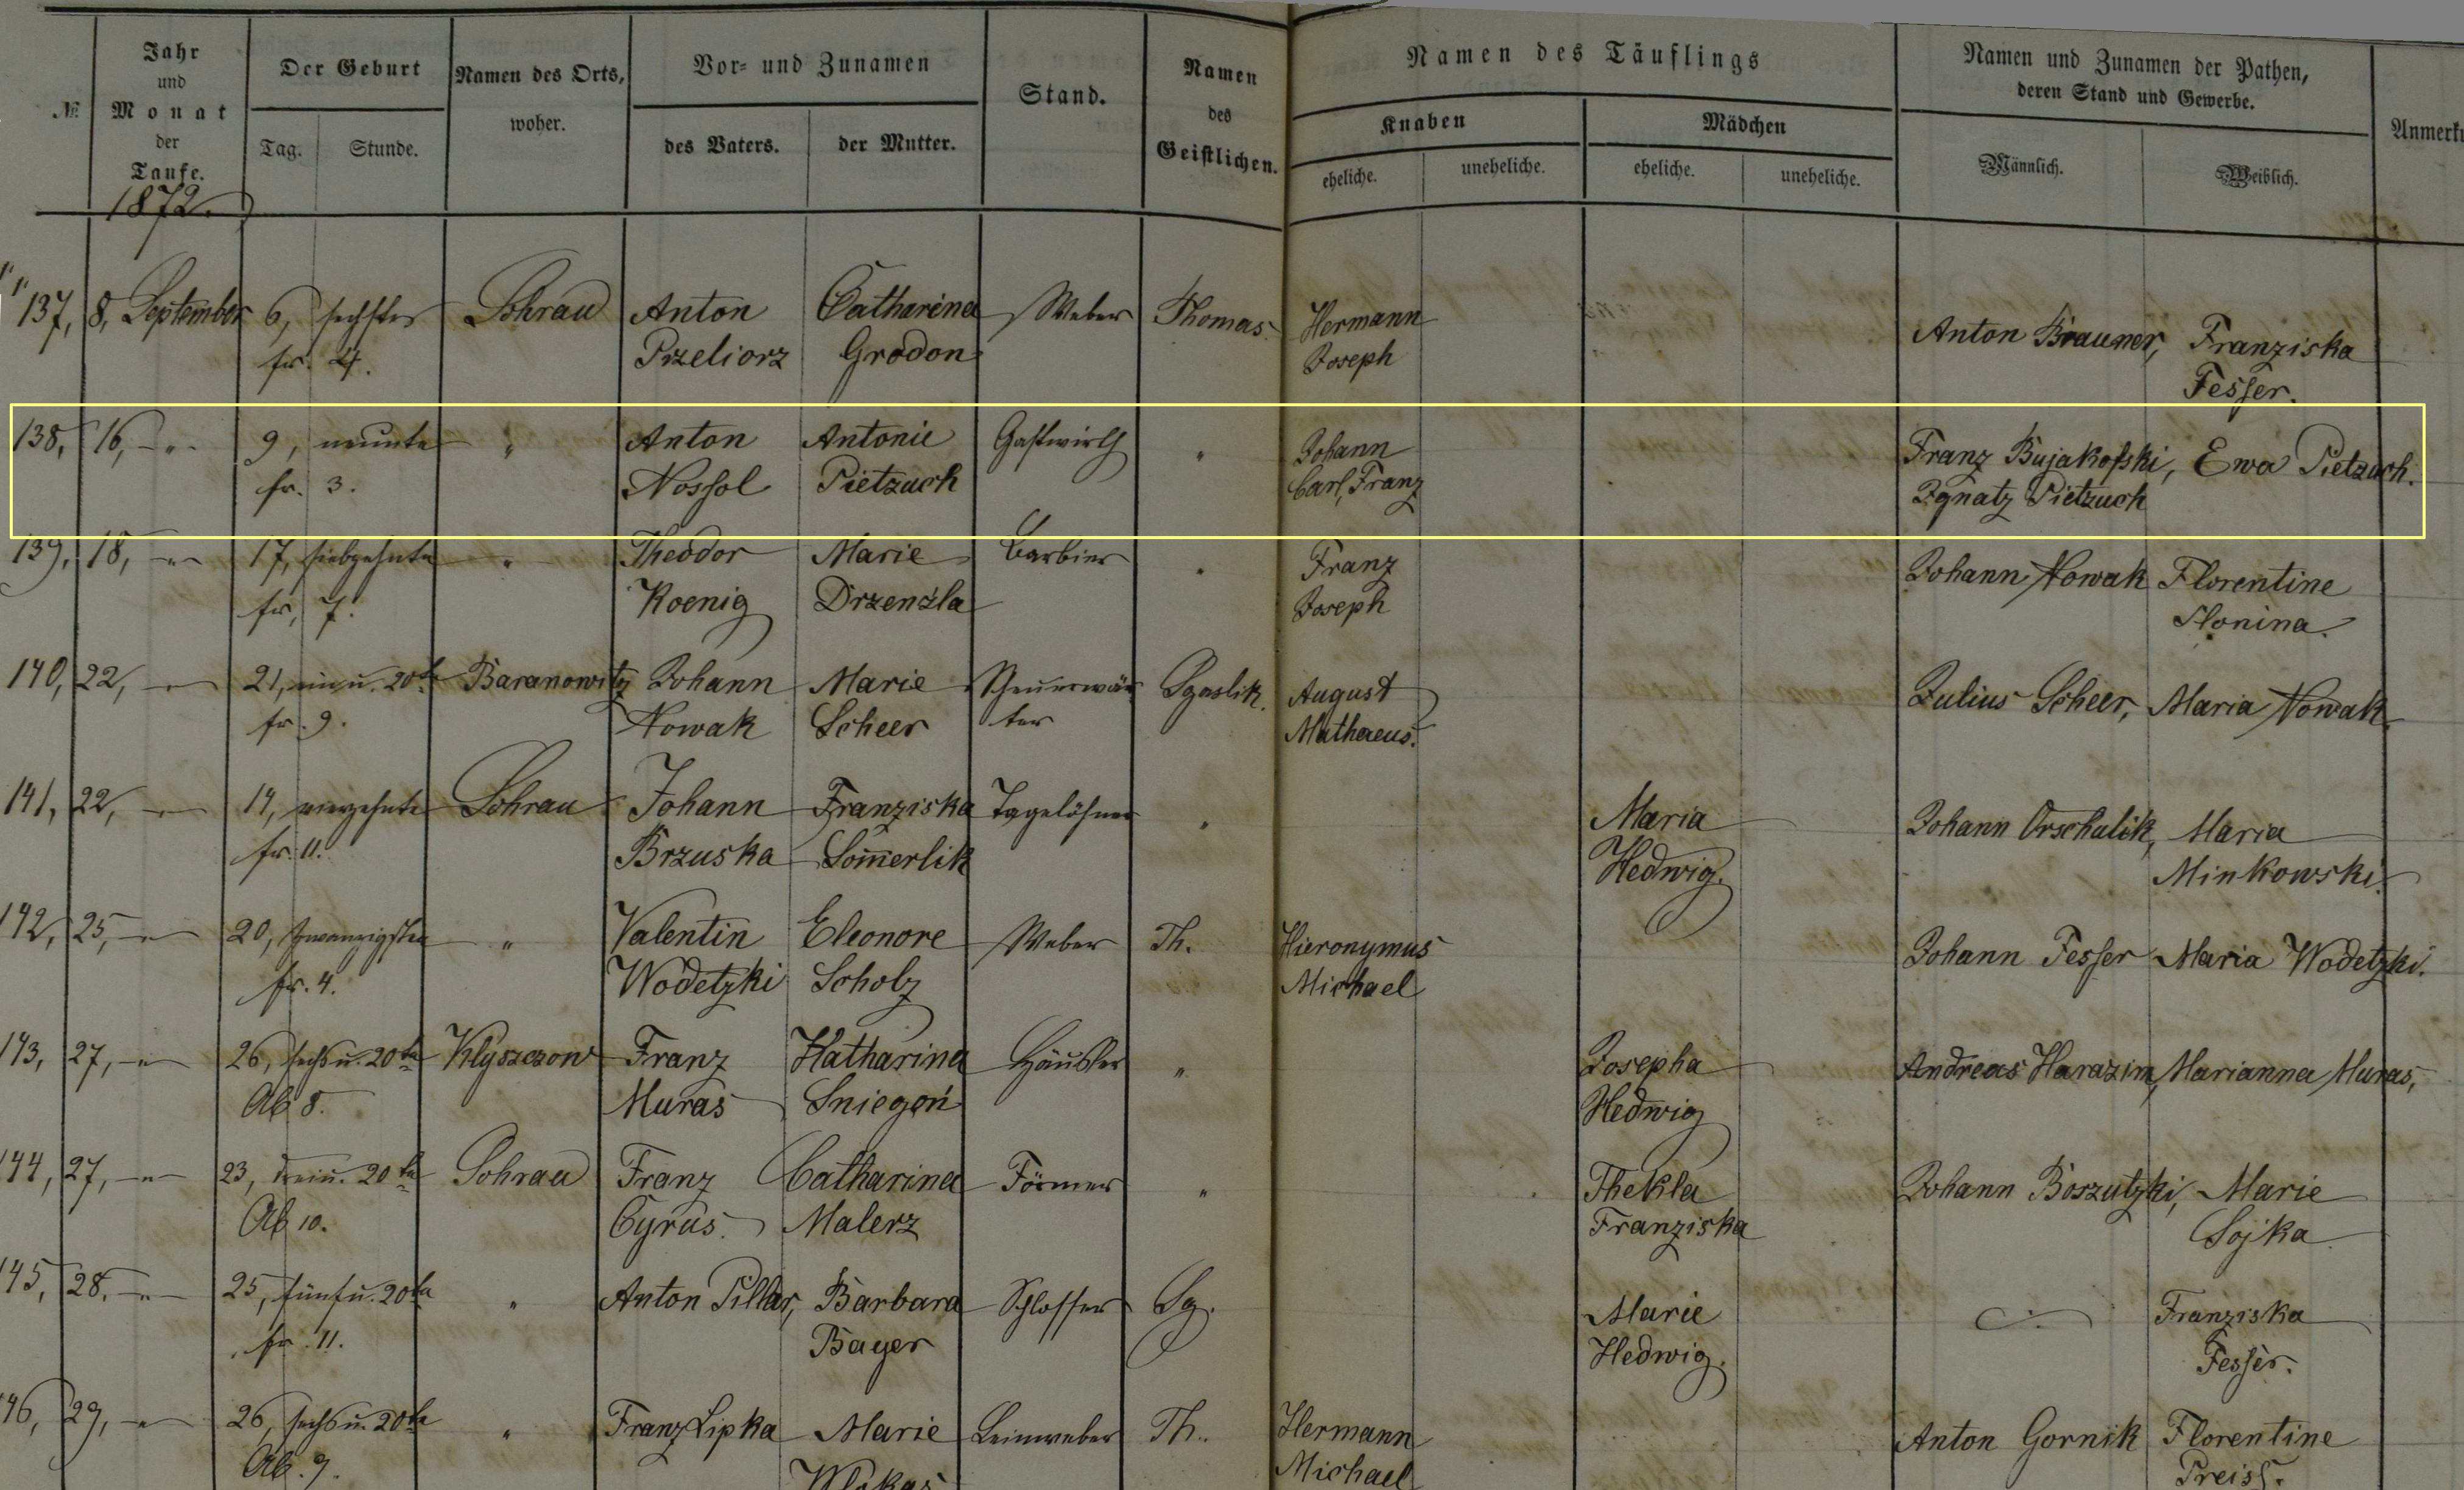 Jahr
und
Monat
der
Taufe.
1872.
Der Geburt
Tag. Stunde.
Namen des Orts,
woher.
Vor- und Zunamen
des Vaters. der Mutter.
Stand.
Namen
des
Geistlichen.
Namen des Täuflings
Knaben Mädchen
eheliche. uneheliche. eheliche. uneheliche.
Namen und Zunamen der Pathen,
deren Stand und Gewerbe.
Männlich. Weiblich.
137, 8, September 6, sechster Sohrau Anton Catharina Weber Thomas. Hermann Anton Brauner, Franziska
fr. 4. Przeliorz Grodon Joseph Fesser.
138, 16, -"- 9, neunte " Anton Antonie Gastwirth " Johann Franz Bujakofski, Ewa Pietzuch.
fr. 3. Nossol Pietzuch Carl, Franz Ignatz Pietzuch
139, 18, -"- 17, siebzehnte " Theodor Marie Barbier " Franz Johann Nowak Florentine
fr, 7. Koenig Drzenźla Joseph Slonina.
140, 22, -"- 21, ein u. 20te Baranowitz Johann Marie August Julius Scheer, Maria Nowak.
fr. 9. Nowak Scheer ter Mathaeus.
141, 22, -"- 14, vierzehnte Sohrau Johann Franziska Tagelöhner " Maria Johann Orschulik, Maria
fr. 11. Brzuska Som̄erlik Hedwig. Minkowski.
142, 25, -"- 20, zwanzigsten " Valentin Eleonore Weber Th. Hieronymus Johann Fesser Maria Wodetzki.
fr. 4. Wodetzki Scholz Michael
143, 27, -"- 26, sechs u. 20te Klyszczow Franz Katharina Häusler " Josepha Andreas Harazim, Marianna Muras,
Ab 8. Muras Sniegoń Hedwig
144, 27, -"- 23, drei u. 20te Sohrau Franz Catharina Former " Thekla Johann Boszutzki, Marie
Ab 10. Cyrus. Malerz Franziska Sojka
145, 28. -"- 25, fünf u. 20te " Anton Pillar, Barbara Schlosser Sg. Marie Franziska
fr. 11. Bayer Hedwig. Fesser.
146, 29, -"- 26, sechs u. 20te " Franz Lipka Marie Leinweber Th. Hermann Anton Gornik Florentine
Ab. 9. Michael Preiss.